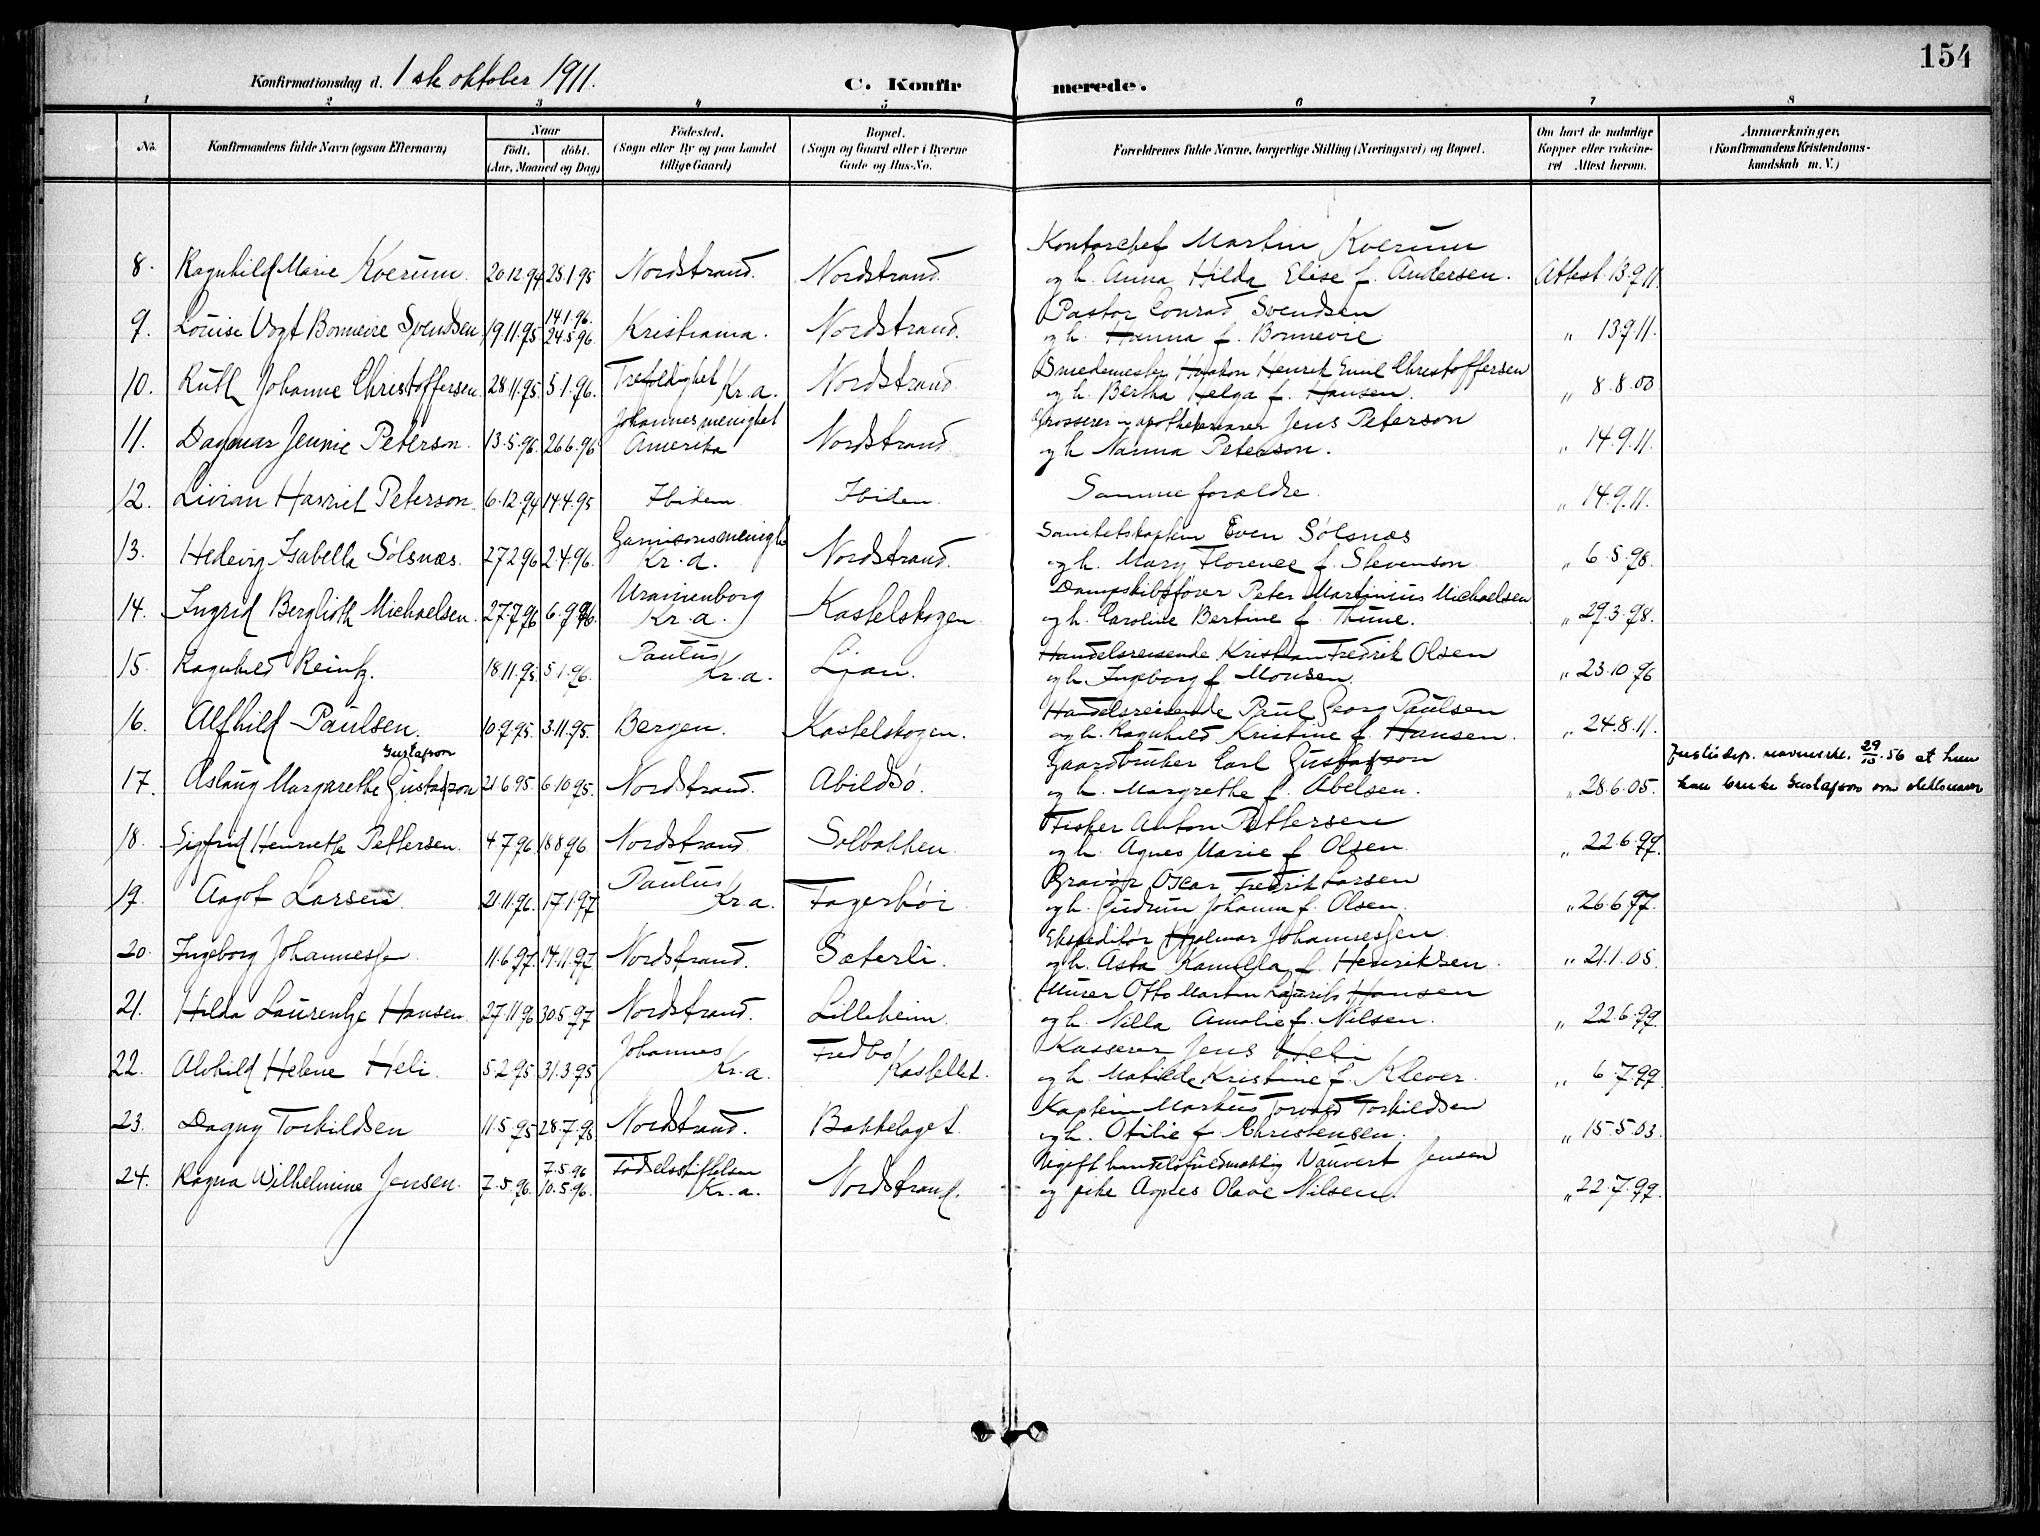 154
Konfirmationsdag d. 1ste oktober 1911.
C. Konfir merede.
1 2 3 4 5 6 7 8
No. Konfirmandens fulde Navn (ogsaa Efternavn) Naar født. døbt. (Aar, Maaned og Dag) Fødested. (Sogn eller By og paa Landet tillige Gaard) Bopæl. (Sogn og Gaard eller i Byerne Gade og Hus-No. Forældrenes fulde Navne, borgerlige Stilling (Næringsvei) og Bopæl. Om havt de naturlige Kopper eller vakcineret Attest herom. Anmærkninger, (Konfirmandens Kristendomskundskab m. V.)
Kontorchef Martin Kverum
8. Ragnhild Marie Kverum. 20.12.94 25.1.95 Nordstrand. Nordstrand. og h. Anna Hilda Elise f. Andersen. Attest 13.9.11.
14.1.96. Pastor Conrad Svendsen
9. Louise Vogt Bonnevie Svendsen 19.11.95 24.5.96. Kristiania. Nordstrand. og h. Hanna f. Bonnevie „ 13.9.11.
Trefoldighet Smedemester Haakon Henrik Emil Christoffersen
10. Ruth Johanne Christoffersen. 28.11.95. 5.1.96. Kr.a. Nordstrand. og h. Bertha Helga f. Hansen. „ 8.8.00
Johannesmenighet Grosserer apothekervarer Jens Peterson
11. Dagmar Jennie Peterson. 13.5.96. 26.6.96 Amerika Nordstrand og h Nanna Peterson. „ 14.9.11.
12. Livian Harriet Peterson. 6.12.94 14.4.95 Ibidem Ibidem. Samme forældre. „ 14.9.11.
Garnisonsmenigh Sanitetskaptein Even Sølsnæs
13. Hedevig Isabella Sølsnæs. 27.2.96 2.4.96. Kr.a. Nordstrand. og h. Mary Florence f. Stevenson. „ 6.5.98.
Uranienborg Dampskibsfører Peter Martinius Michaelsen
14. Ingrid Berglioth Michaelsen. 27.7.96 6.9.96. Kr.a. Kastelskogen. og h. Caroline Bertine f. Thune. „ 29.3.98.
Paulus Handelsreisende Kristian Fredrik Olsen
15. Ragnhild Reintz. 18.11.95. 5.1.96. Kr.a. Ljan. og h. Ingeborg f. Monsen. „ 23.10.96
Handelsreisende Paul Georg Paulsen
16. Alfhild Paulsen. 10.9.95 3.11.95. Bergen. Kastelskogen. og h. Ragnhild Kristine f. Hansen. „ 24.8.11.
Gustafson Gaardbruker Carl Gustafson Justisdep. 29/10.56 at hun
17. Aslaug Margarethe Gustafson 21.6.95. 6.10.95. Nordstrand. Abildsø. og h. Margrethe f. Abelsen. „ 28.6.05. kan bruke Gustafson som slektsnavn
Fisker Anton Pettersen
18. Sigfrid Henriette Pettersen. 4.7.96. 18.8.96 Nordstrand. Solbakken. og h. Agnes Marie f. Olsen. „ 22.6.99.
Paulus Gravør Oscar Fredrik Larsen
19. Aagot Larsen. 21.11.96. 17.1.97 Kr.a. Fagerhøi og h. Gudrun Johanna f. Olsen. „ 26.6.97.
Ekspeditør Hjalmar Johannessen.
20. Ingeborg Johannessen 11.6.97. 14.11.97 Nordstrand. Sæterli. og h. Asta Kamilla f. Henriksen. „ 21.1.05.
Murer Otto Martin Laurits Hansen
21. Hilda Laurentze Hansen. 27.11.96 30.5.97 Nordstrand. Lilleheim. og h. Nilla Amalie f. Nilsen. „ 22.6.99.
Johannes Fredbo Kasserer Jens Heli
22. Alvhild Helene Heli. 5.2.95 31.3.95 Kr.a. Kastellet. og h. Matilde Kristine f. Klever. „ 6.7.99.
Kaptein Markus Torvald Torkildsen
23. Dagny Torkildsen 11.5.95 28.7.95 Nordstrand. Bakkelaget. og h. Otilie f. Christensen. „ 15.5.03.
7.5.96 Fødselsstiftelsen Ugift handelsfuldmektig Jensen
24. Ragna Wilhelmine Jensen. 7.5.96. 10.5.96. Kr.a. Nordstrand. og pike Agnes Olave Nilsen. „ 22.7.99.